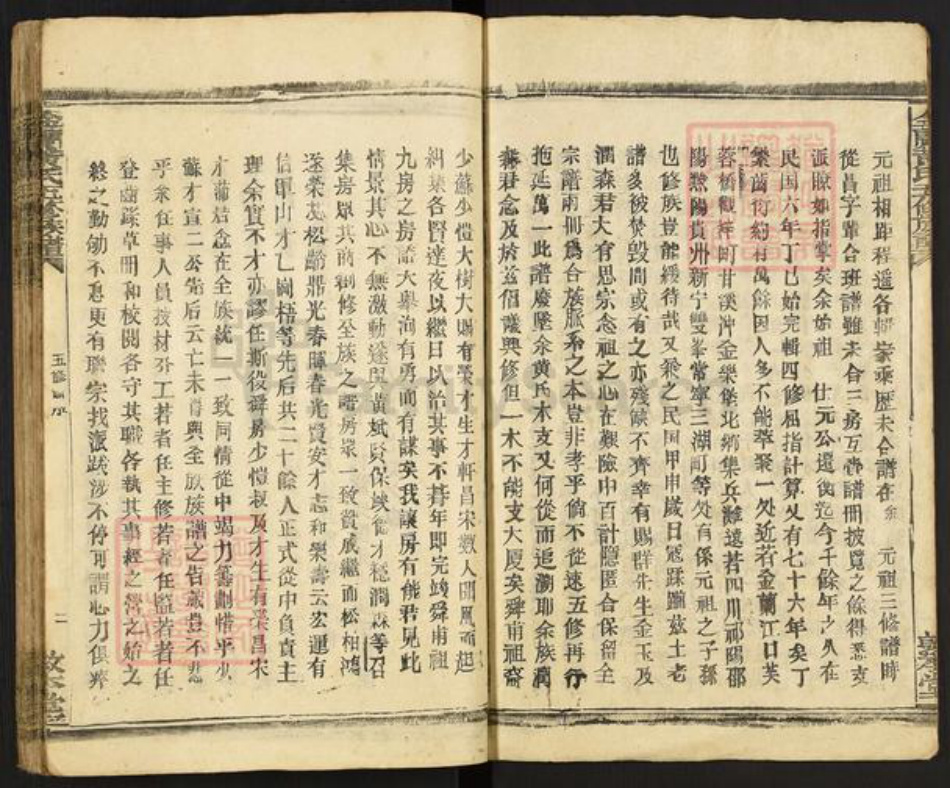 元祖相距程遥各輯家乘歷未合譜在余 元祖三修譜時
從昌字輩合班譜雖未合三房互帶譜冊披覧之餘得悉支
派晾如指掌矣余始祖 仕元公還衡迄今千餘年之久在
民国六年丁巳始完輯四修屈指計算又有七十六年矣丁
繁齒衍約有萬餘因人多不能萃聚一处近若金蘭江口芙
蓉橋觀祥町甘溪沖金榮堡北鄉集兵灘遠若四川祁陽邵
陽黔陽貴州新宁雙峯常寧三湖町等处有係元祖之子孫
也修族豈能緩待哉又乘之民国甲申歲日冦蹂躪茲土老
譜多被焚毀間或有之亦残缺不齊幸有賜群先生金玉及
潤森君大有思宗念祖之心在艱險中百計隱匿合保留全
宗譜兩冊爲合族脈系之本豈非孝乎倘不從速五修再行
抱延萬一此譜廢墜余黄氏木支又何從而追溯耶余族潤
森君念及於兹倡議興修但一木不能支大厦矣舜甫祖裔
少蘇少愷大樹大賜有榮才生才軒昌宋数人聞風而起
糾集各賢達夜以繼日以治其事不朞年即完竣舜甫祖
九房之房譜大舉洵有勇而有謀矣我讓房有能君見此
情景其心不無激動遂與黄斌賢保炎從才穏潤森等召
集房眾共商創修至族之譜房眾一致賛成繼而松柏鴻
逐榮茂松齡鼎光春暉春光賢安才志和榮壽云宏運有
信軍山才乙國梧等先后共二十餘人正式從中負責主
理余實不才亦謬任撕役舜房少愷叔及才生有榮昌宋
才蒲培金在全族統一一致同情從中竭力籌劃惜乎少
蘇才宣二公先后云亡未得與全放族譜之告蕆豈不悲
乎余在事人員按材分工若者任主修若者任監若者任
登齒錄草冊和校閱各守其職各執其事經之營之始之
終之勤劬不息更有聯宗找派跋涉不停可謂心力俱瘁
五修 序
二
敦本堂